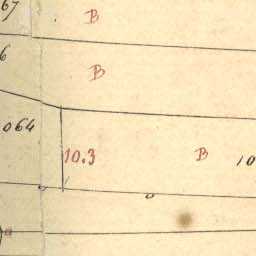 67
B
6
B
064
10.3
B
10
a